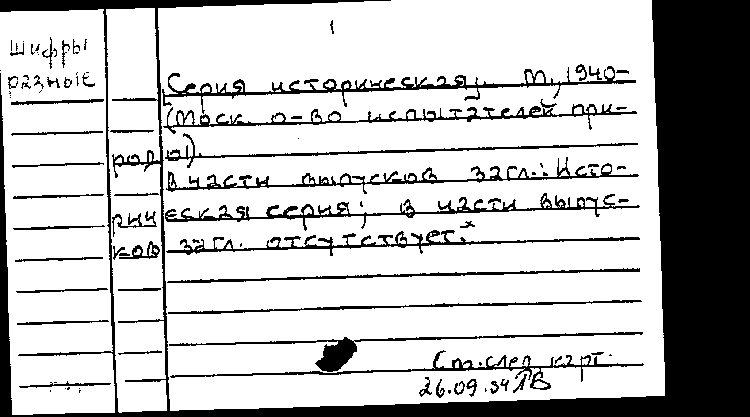 1
Шифры
разные
Серия историческая; М., 1940-
(Моск о-во испытателей при-
роды).
В части выпусков загл.: Исто-
рическая серия; в части выпус-
ков загл. отсутствует.*
См. след карт.
26.09.94